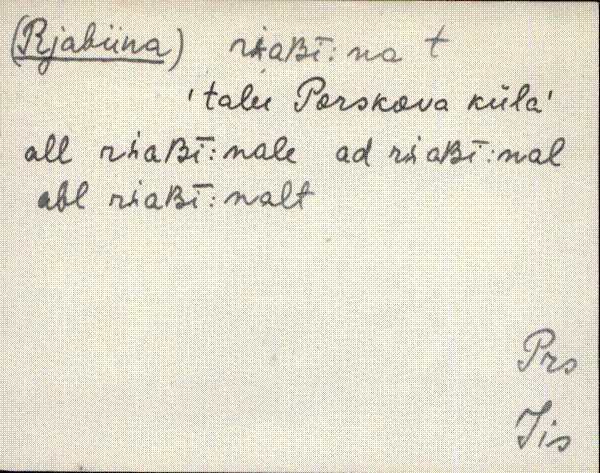 (Rjabiina) ri̯aʙī:na t
'talu Porskova küla'
all ri̯aʙī:nale ad ri̯aʙī:nal
abl ri̯aʙī:nalt
Prs
Jis